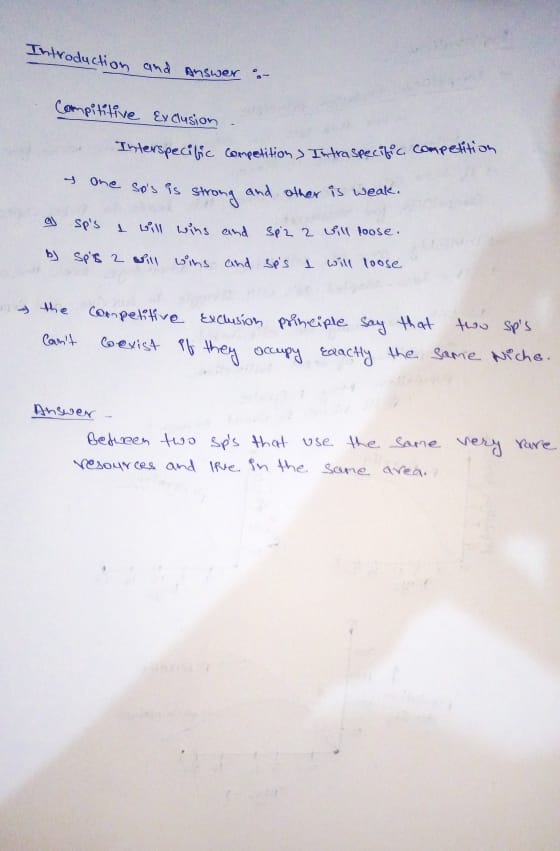 Introduction and Answer :-
Compititive Exclusion -
Interspecific Competition > Intraspecific Competition
→ One Sp's is strong and other is weak.
a) Sp's 1 will wins and Sp's 2 will loose.
b) Sp's 2 will wins and Sp's 1 will loose
→ the Competitive Exclusion principle say that two sp's
Can't Coexist if they occupy Exactly the Same Niche.
Answer -
Between two Sp's that use the Same very rare
resources and live in the Same area.